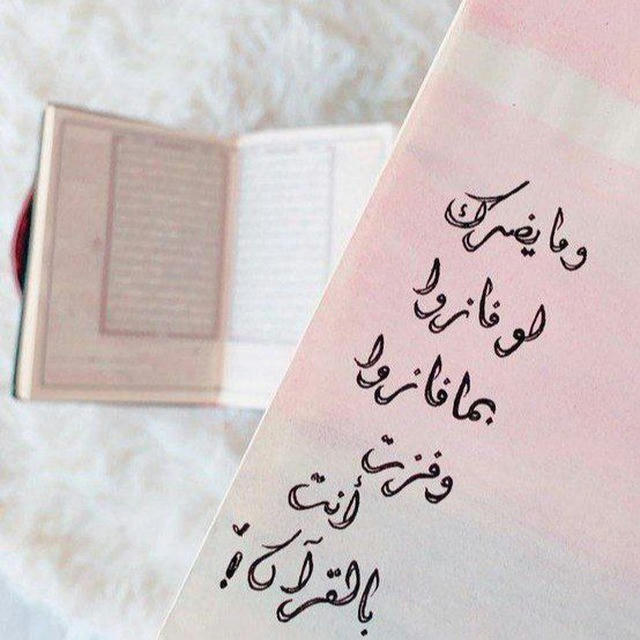 وما يضرك
لو فازوا
بما فازوا
وفزت
أنت
بالقرآن؟!